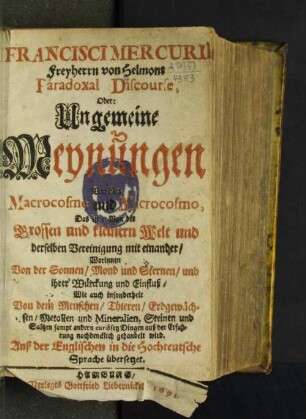 FRANCISCI MERCURII
Freyherrn von Helmont
Paradoxal Discourse,
Oder:
Ungemeine
Meynungen
Macrocosmo und Microcosmo,
Das ist: Von der
Grossen und kleinern Welt und
derselben Vereinigung mit einander/
Worinnen
Von der Sonnen/ Mond und Sternen/ und
ihrer Würckung und Einfluß/
Wie auch insonderheit
Von dem Menschen/ Thieren/ Erdgewäch-
sen/ Metallen und Mineralien, Steinen und
Saltzen sampt andern curiösen Dingen auß der Erfah-
rung nachdencklich gehandelt wird.
Auß der Englischen in die Hochteutsche
Sprache übersetzet.
HAMBURG,
Verlegts Gottfried Liebernickel
1691